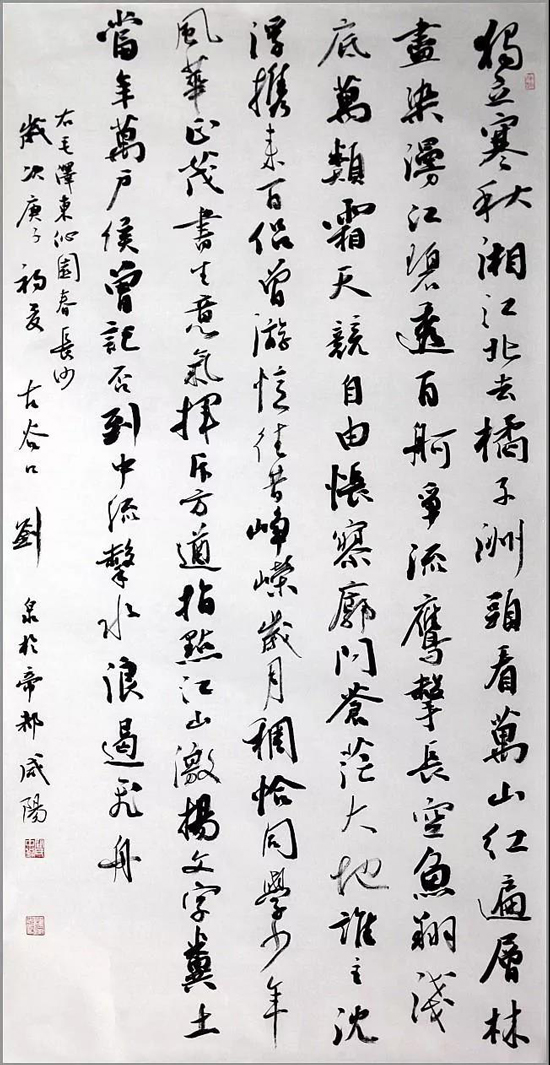 獨立寒秋湘江北去橘子洲頭看萬山紅遍層林
盡染漫江碧透百舸爭流鷹擊長空魚翔淺
底萬類霜天競自由悵寥廓问蒼茫大地誰主沈
浮攜来百侣曾游憶往昔崢嶸歲月稠恰同學少年
風華正茂書生意氣揮斥方遒指點江山激揚文字糞土
當年萬户侯曾記否到中流擊水浪遏飛舟
右毛澤東沁園春長沙
歲次庚子初夏 古谷口 劉泉於帝都咸陽